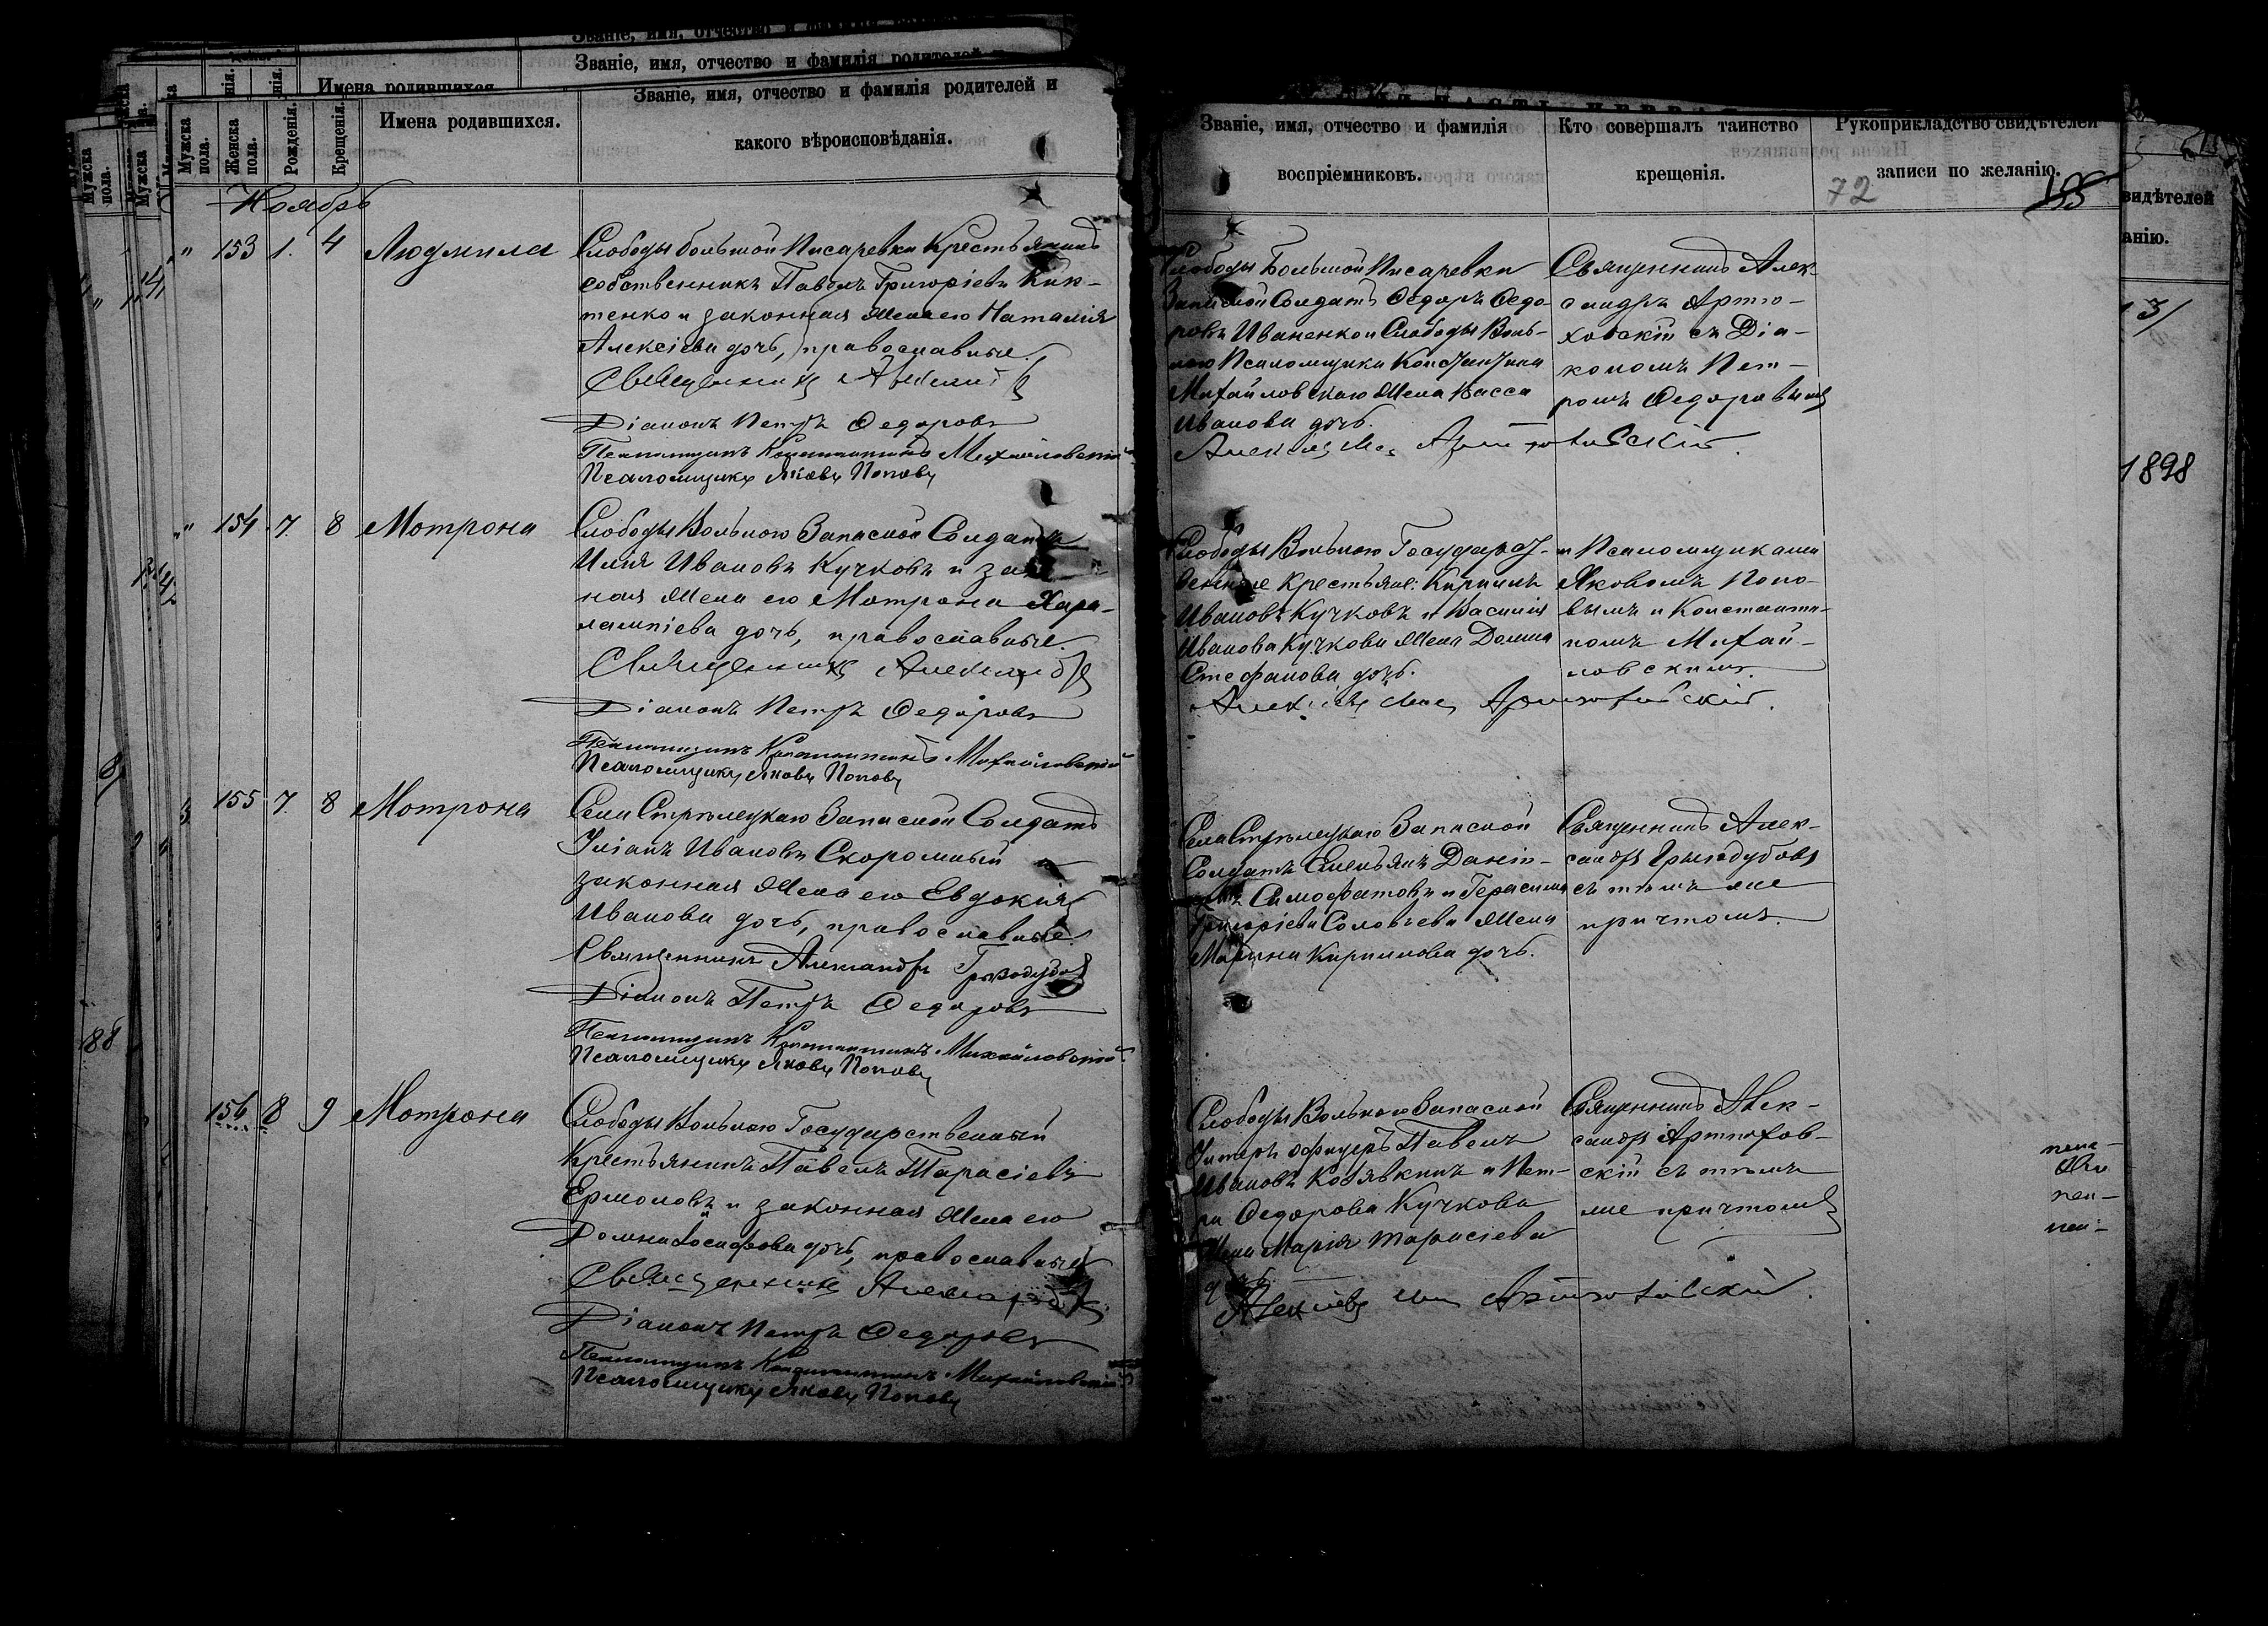 Званіе, имя, отчество и фамилія родителей и
Имена родившихся
Званіе, имя, отчество и фамилія родителей и
какого вѣроисповѣданія.
Мужска пола.
Женска пола.
Рожденія.
Крещенія.
Имена родившихся.
Ноябрь
" 153 1. 4 Людмила
Слободы большой Писаревки Крестьянинъ
собственникъ Павелъ Григоріевъ
тенко и законная жена его Наталія
Алексіева дочь, православные.
Священникъ
Діаконъ Петръ Федоровъ
Псаломщикъ Константинъ Михайловскій
Псаломщикъ Яковъ Поповъ
" 154 7. 8 Мотрона
Слободы Вольного Запасной Солдатъ
Илія Ивановъ Кучковъ и
ная жена его Мотрона Хара-
лампіева дочь, православные.
Священникъ Александръ
Діаконъ Петръ Федоровъ
Псаломщикъ Константинъ Михайловскій
Псаломщикъ Яковъ Поповъ
155 7. 8 Мотрона
Села Стрѣлецкаго Запасной Солдатъ
Уліанъ Ивановъ Скоромный
законная жена его Евдокія
Иванова дочь, православные.
Священникъ Александръ
Діаконъ Петръ Федоровъ
Псаломщикъ Константинъ Михайловскій
Псаломщикъ Яковъ Поповъ
156 8 9 Мотрона
Слободы Вольного Государственный
Крестьянинъ Павелъ Тарасіевъ
Ермоловъ и законная жена его
Домна Іосифова дочь, православные
Священникъ Александръ
Діаконъ Петръ Федоровъ
Псаломщикъ Константинъ Михайловскій
Псаломщикъ Яковъ Поповъ
Званіе, имя, отчество и фамилія
воспріемниковъ.
Кто совершалъ таинство
крещенія.
Рукоприкладство свидѣтелей
записи по желанію.
72
Слободы Большой Писаревки
Запасной Солдатъ Федоръ Федо-
ровъ Иваненко и Слободы Воль-
ного Псаломщика Константина
Михайловскаго жена Васса
Иванова дочь.
Священникъ Алек-
сандръ Артю-
ховскій съ Діа-
кономъ Пет-
ромъ Федоровымъ
Артюховскій.
Слободы Вольного Государст-
венные крестьяне: Кириллъ
Ивановъ Кучковъ и Василія
Иванова Кучкова жена Домна
Стефанова дочь.
и Псаломщиками
Яковомъ Попо-
вымъ и Константи-
номъ Михай-
ловскимъ.
Артюховскій.
Села Стрѣлецкаго Запасной
Солдатъ Емельянъ Даніи-
и Герасима
Григоріева Соловьева жена
Марина Кириллова дочь.
Священникъ Алек-
сандръ
съ тѣмъ же
причтомъ.
Слободы Вольного Запасной
Унтеръ офицеръ Павелъ
Ивановъ Козявкинъ и Пет-
ра Федорова Кучкова
жена Марія Тарасіева
дочь.
Священникъ Алек-
сандръ Артюхов-
скій съ тѣмъ
же причтомъ
Артюховскій.
видѣтелей
анію.
1898